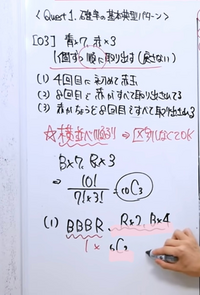 <Quest 1. 確率の基本典型パターン>
[03] 青×7, 赤×3
1個ずつ順に取り出す (戻さない)
(1) 4回目に初めて赤玉
(2) 8回目に赤がすべて取り出されてる
(3) 赤がちょうど8回目ですべて取り出される
☆横並べ順列 ⇒ 区別しなくてOK
B×7, R×3
⇒ 10!/7!×3! = 10C3
(1) BBBR, R×2, B×4
1 × 6C2